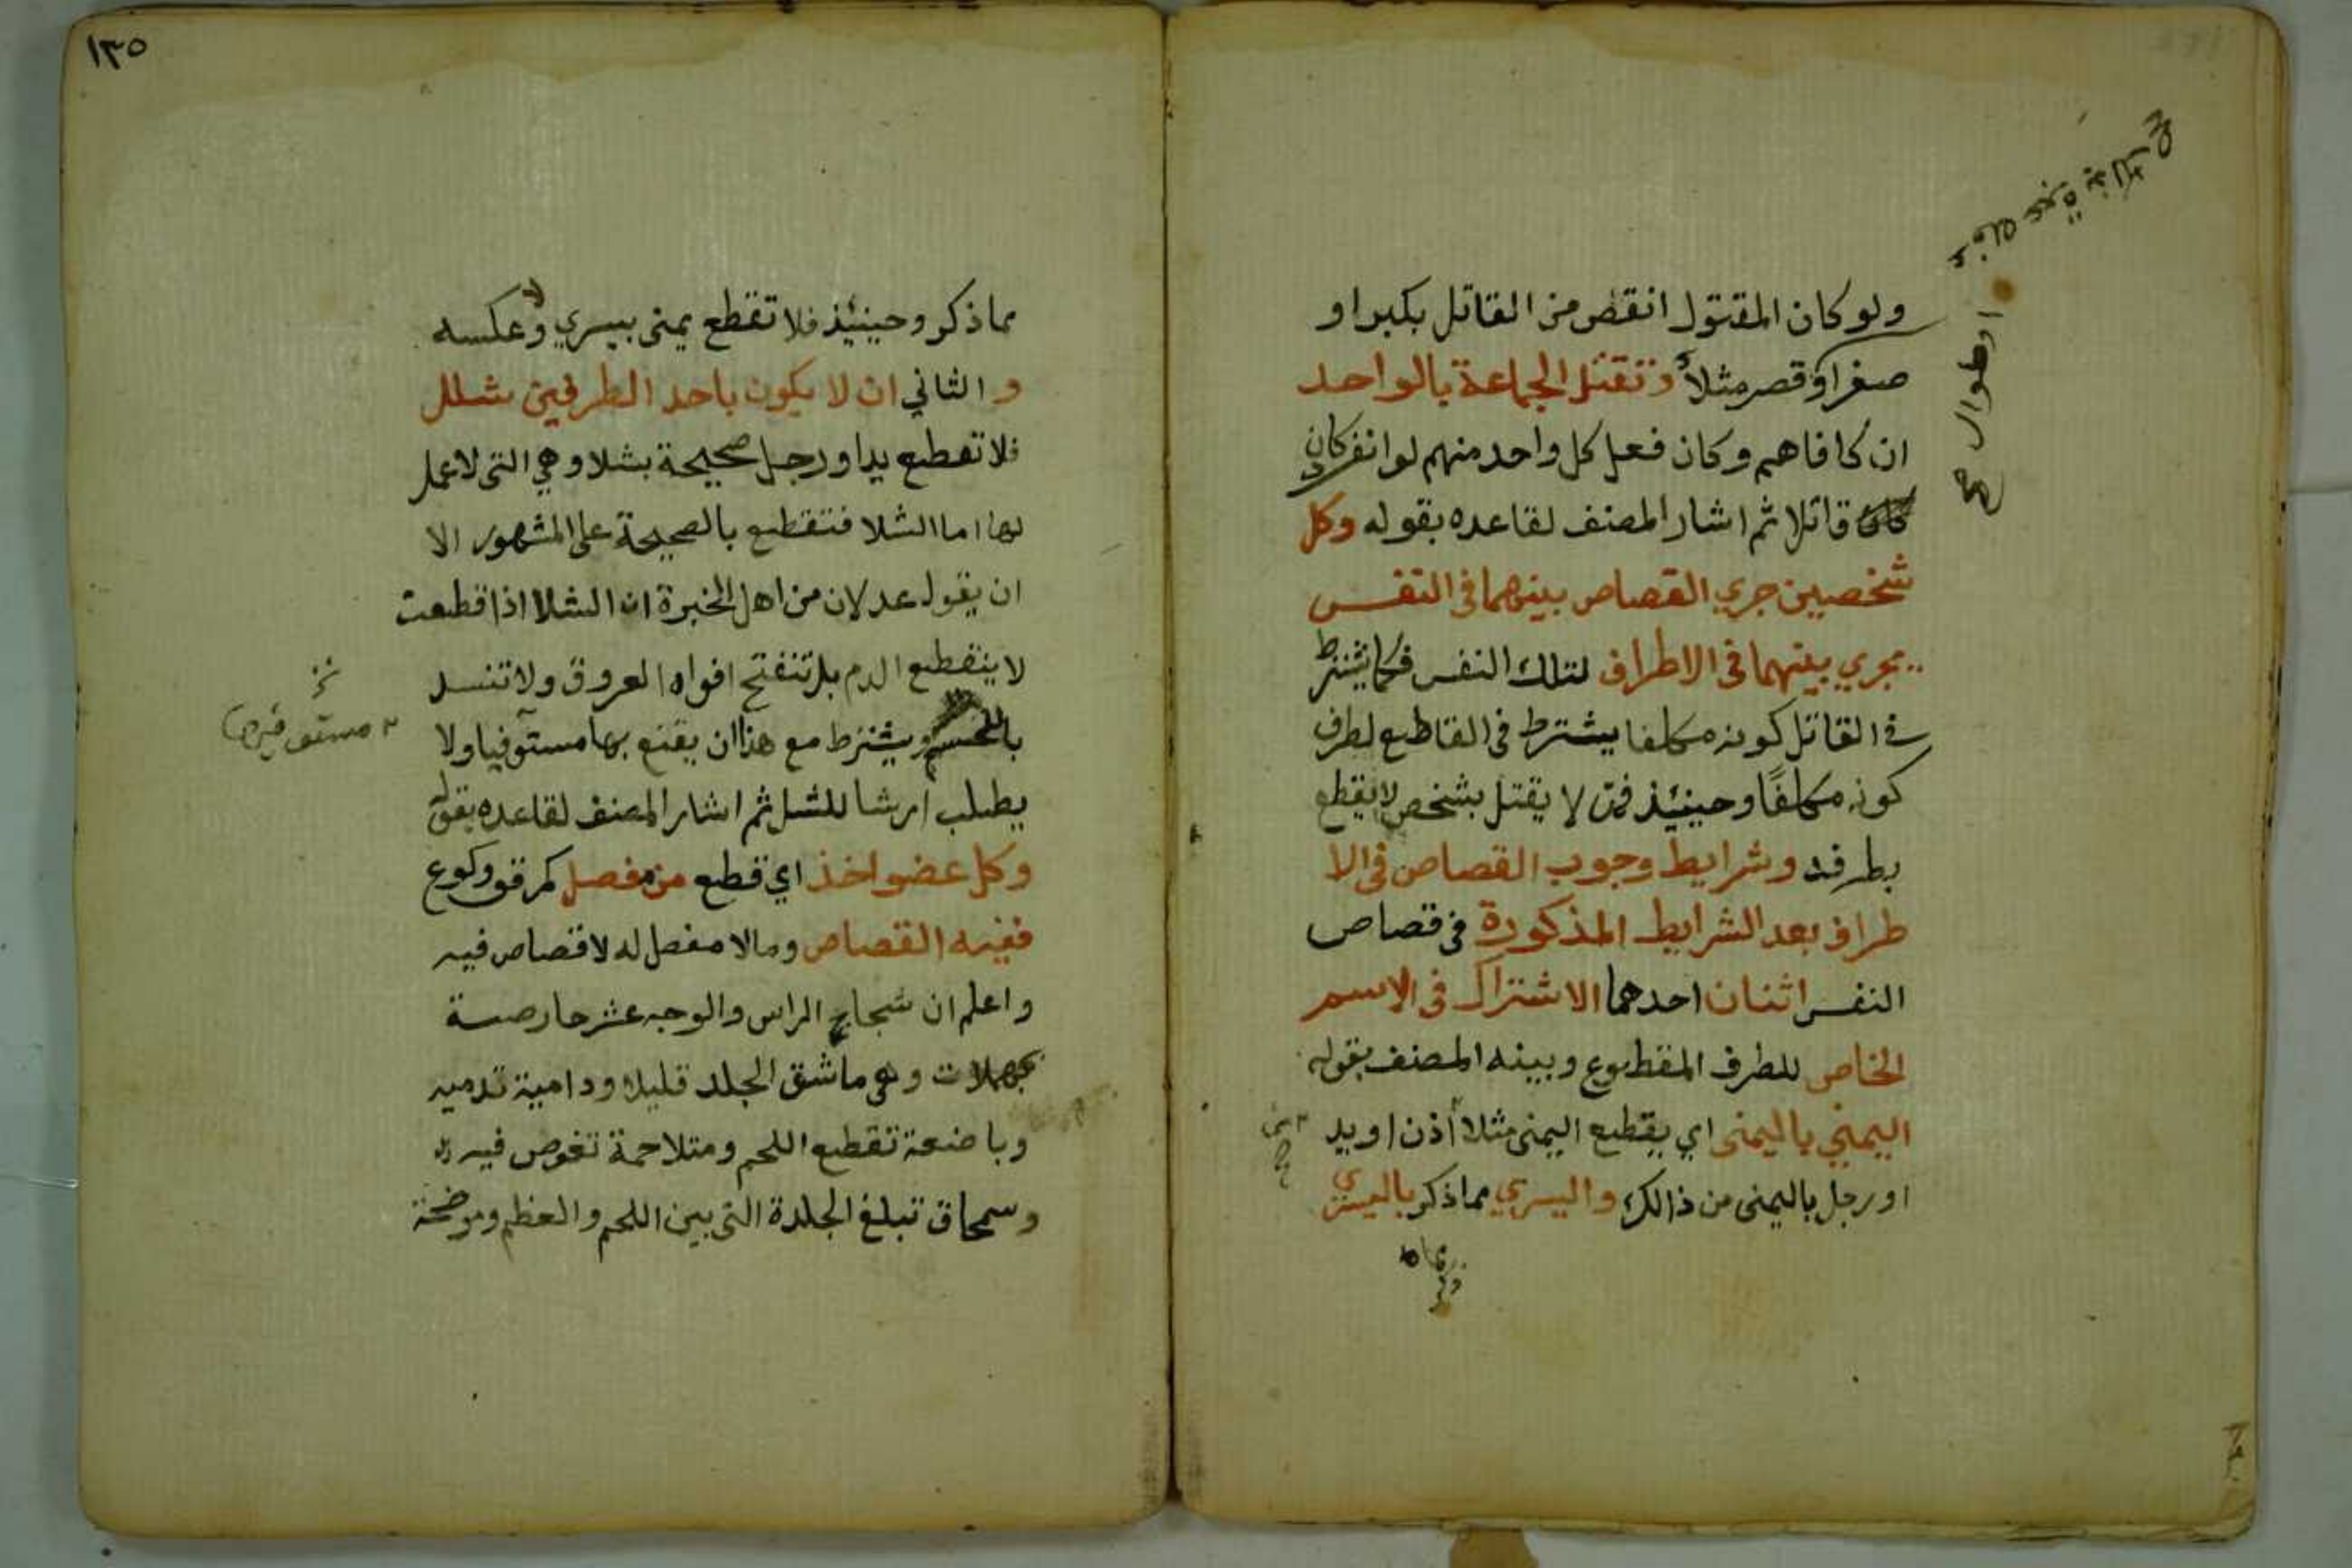 ولو كان المقتول انقص من القاتل بكبر او
صغر او قصر مثلا وتقتل الجماعة بالواحد
ان كافاهم وكان فعل كل واحد منهم لو انفرد كان
قاتلا ثم اشار المصنف لقاعده بقوله وكل
شخصين جري القصاص بينهما في النفس
يجري بينهما في الاطراف لتلك النفس فكما يشترط
في القاتل كونه مكلفا يشترط في القاطع لطرف
كونه مكلفًا وحينيئذ فمن لا يقتل بشخص لا يقطع
بطرفه وشرايط وجوب القصاص في الا
طراف بعد الشرايط المذكورة في قصاص
النفس اثنان احدهما الاشتراك في الاسم
الخاص للطرف المقطوع وبينه المصنف بقوله
اليمني باليمنى اي يقطع اليمنى مثلا أذن او يد
او رجل باليمنى من ذالك واليسري مما ذكر باليسرى
مما ذكر
او طوال صح
١٣٥
مما ذكر وحينيئذ فلا تقطع يمنى بيسري ولا عكسه
والثاني ان لا يكون باحد الطرفين شلل
فلا تقطع يد او رجل صحيحة بشلا وهي التي لا عمل
لها اما الشلا فتقطع بالصحيحة على المشهور الا
ان يقول عدلان من اهل الخبرة ان الشلا اذا قطعت
لا ينقطع الدم بل تنفتح افواه العروق ولا تنسد
بالحسم ويشترط مع هذا ان يقنع بها مستوفيا ولا
يطلب ارشا للشلل ثم اشار المصنف لقاعده بقوله
وكل عضو اخذ اي قطع من مفصل كمرفق وكوع
ففيه القصاص وما لا مفصل له لا قصاص فيه
واعلم ان شجاج الراس والوجه عشر حارصة
بمهملات وهي ما شق الجلد قليلا ودامية تدميه
وباضعة تقطع اللحم ومتلاحمة تغوص فيه
وسمحاق تبلغ الجلدة التي بين اللحم والعظم وموضحة
مستوفيها